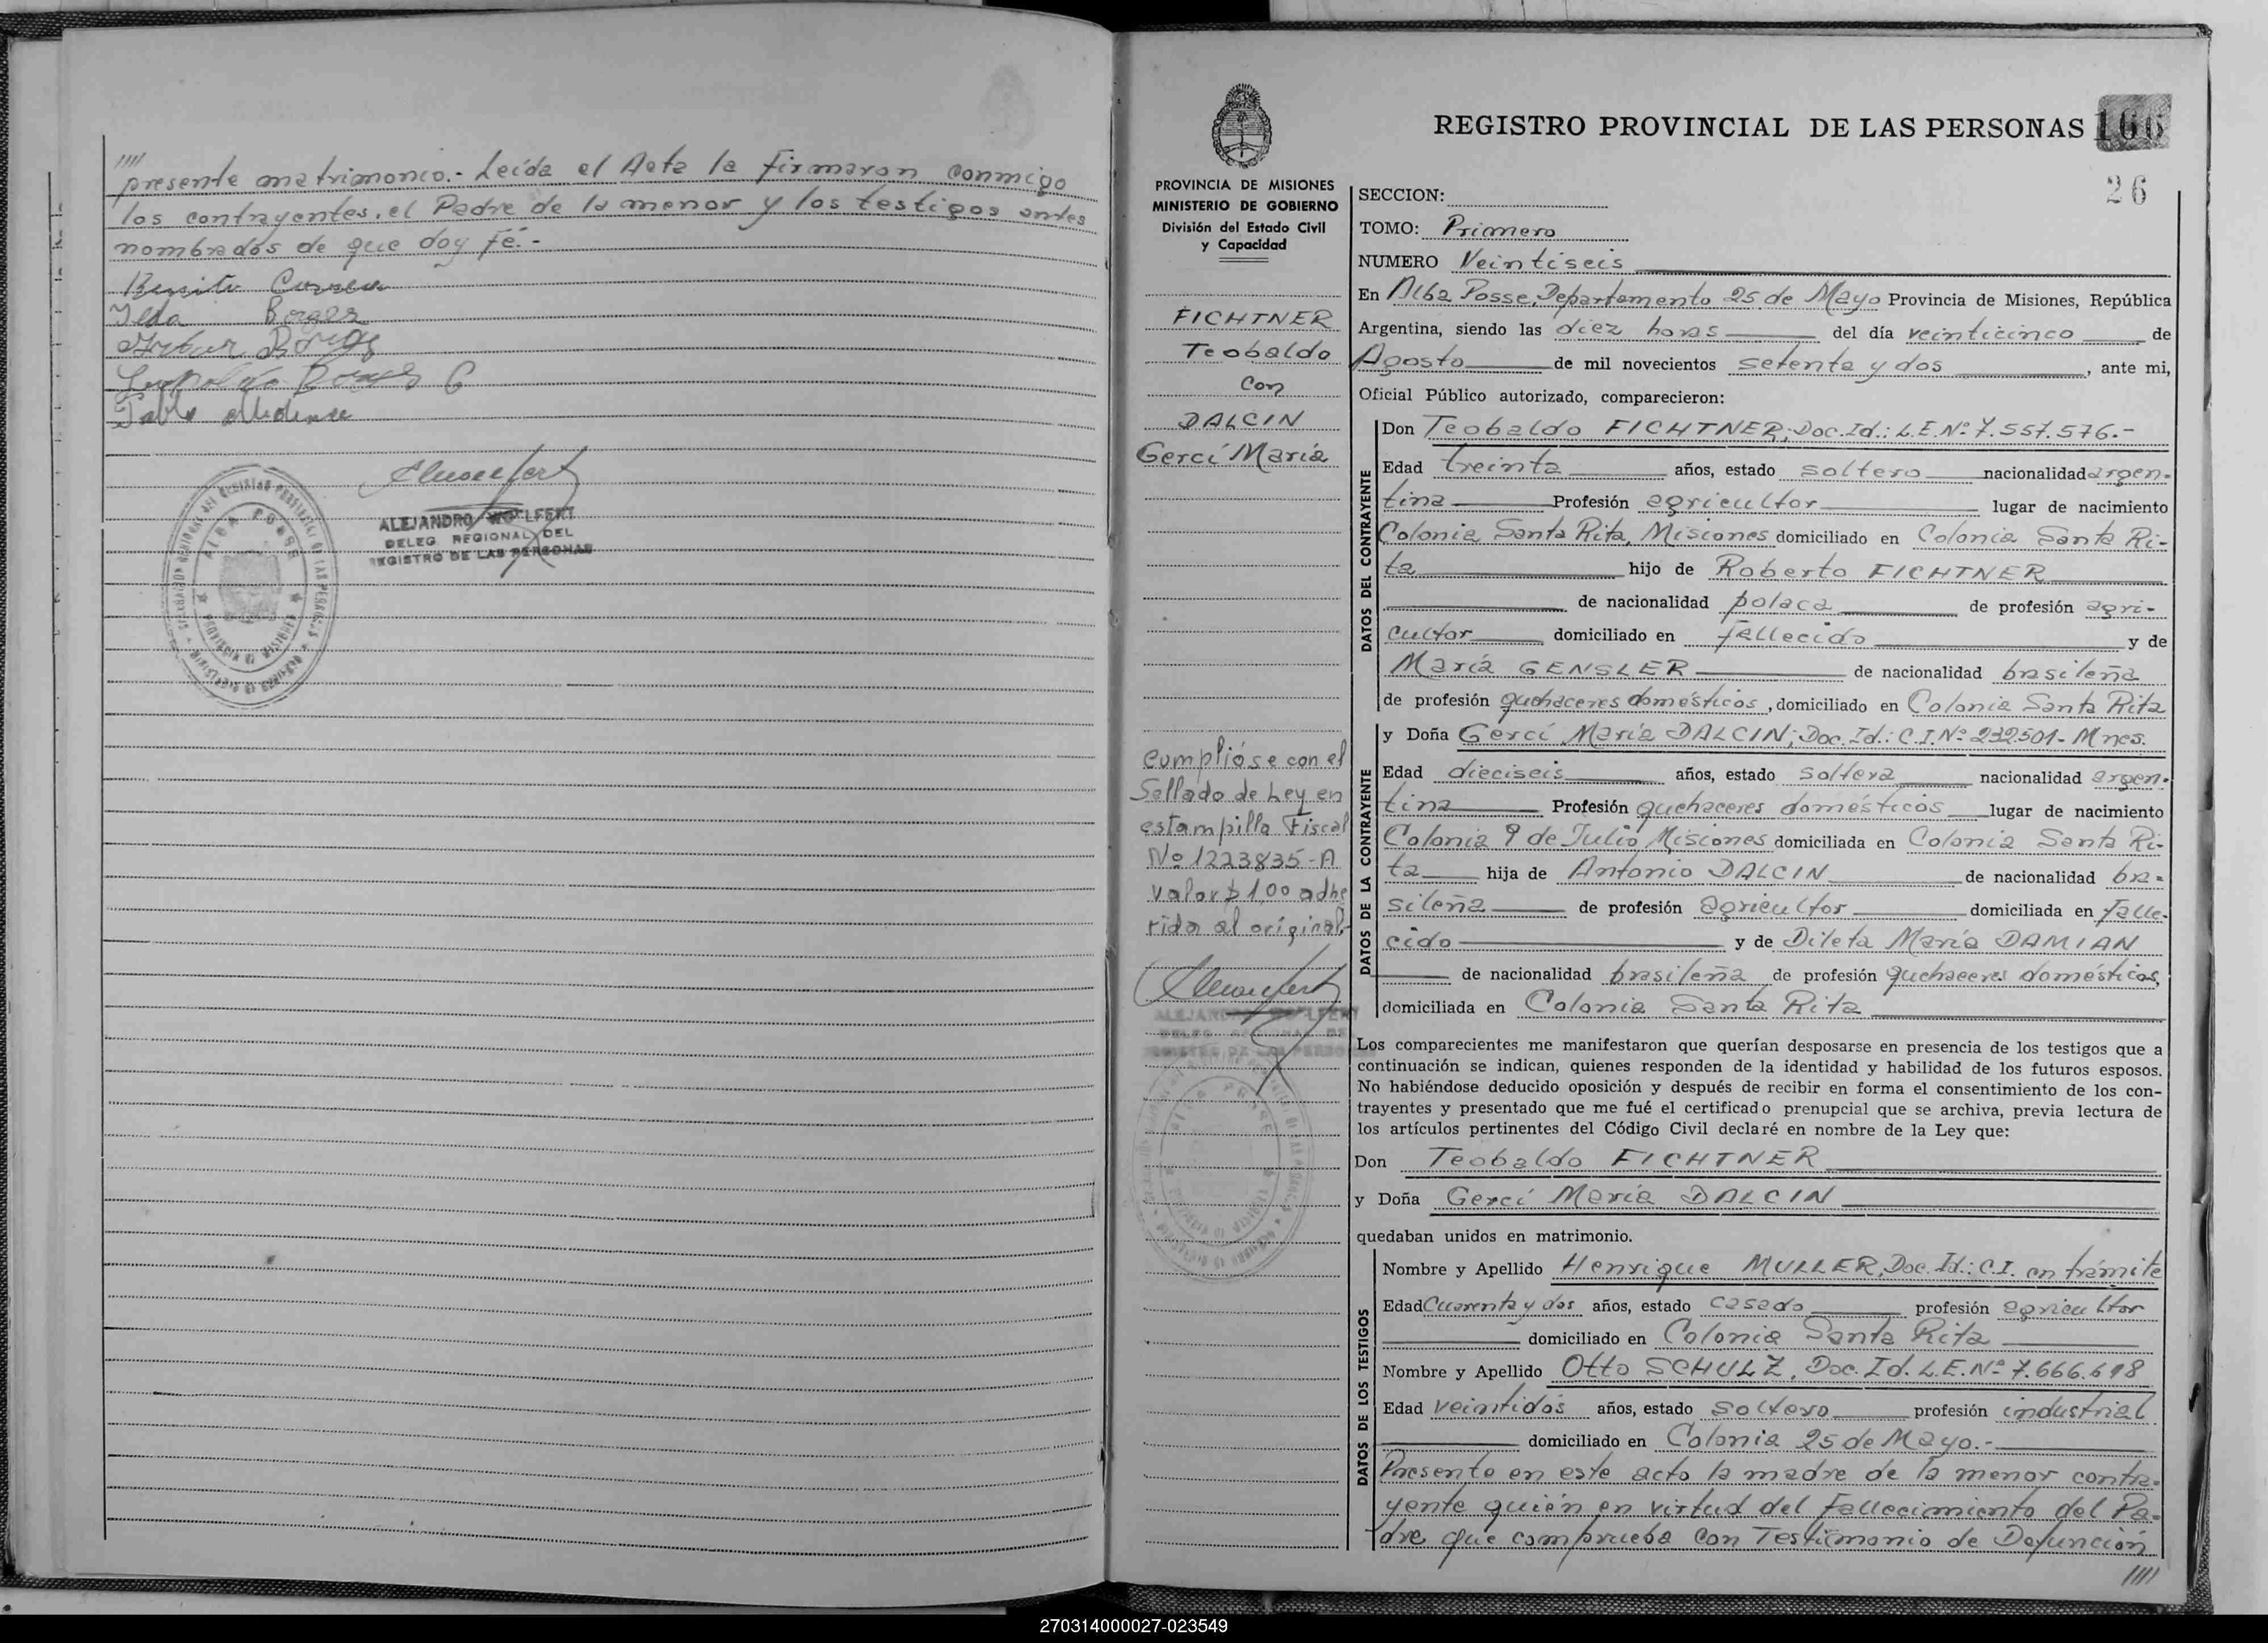 ////
presente matrimonio.- Leída el Acta la firmaron conmigo
los contrayentes, el Padre de la menor y los testigos antes
nombrados de que doy Fé.-
Benito Correa
Ilda Borges
Artur Borges
Borges
Pablo Medina
ALEJANDRO WOLFERT
DELEG. REGIONAL DEL
REGISTRO DE LAS PERSONAS
ALBA POSSE
REGISTRO PROVINCIAL DE LAS PERSONAS 166
26
PROVINCIA DE MISIONES
MINISTERIO DE GOBIERNO
División del Estado Civil
y Capacidad
FICHTNER
Teobaldo
con
DALCIN
Gercí María
Cumplióse con el
Sellado de Ley en
estampilla Fiscal
Nº 1223835-A
valor $ 1,00 adhe
rida al original.-
ALEJANDRO WOLFERT
SECCION:
TOMO: Primero
NUMERO Veintiseis
En Alba Posse, Departamento 25 de Mayo Provincia de Misiones, República
Argentina, siendo las diez horas del día veinticinco de
Agosto de mil novecientos setenta y dos, ante mi,
Oficial Público autorizado, comparecieron:
DATOS DEL CONTRAYENTE
Don Teobaldo FICHTNER; Doc. Id.: L.E. Nº 7.557.576.-
Edad treinta años, estado soltero nacionalidad argen-
tina Profesión agricultor lugar de nacimiento
Colonia Santa Rita, Misiones domiciliado en Colonia Santa Ri-
ta hijo de Roberto FICHTNER
de nacionalidad polaca de profesión agri-
cultor domiciliado en fallecido y de
María GENSLER de nacionalidad brasileña
de profesión quehaceres domésticos, domiciliado en Colonia Santa Rita
DATOS DE LA CONTRAYENTE
y Doña Gercí María DALCIN; Doc. Id.: C.I. Nº 232.501- Mnes.
Edad dieciseis años, estado soltera nacionalidad argen-
tina Profesión quehaceres domésticos lugar de nacimiento
Colonia 9 de Julio, Misiones domiciliada en Colonia Santa Ri-
ta hija de Antonio DALCIN de nacionalidad bra-
sileña de profesión agricultor domiciliada en falle-
cido y de Dileta María DAMIAN
de nacionalidad brasileña de profesión quehaceres domésticos,
domiciliada en Colonia Santa Rita
Los comparecientes me manifestaron que querían desposarse en presencia de los testigos que a
continuación se indican, quienes responden de la identidad y habilidad de los futuros esposos.
No habiéndose deducido oposición y después de recibir en forma el consentimiento de los con-
trayentes y presentado que me fué el certificado prenupcial que se archiva, previa lectura de
los artículos pertinentes del Código Civil declaré en nombre de la Ley que:
Don Teobaldo FICHTNER
y Doña Gercí María DALCIN
quedaban unidos en matrimonio.
DATOS DE LOS TESTIGOS
Nombre y Apellido Henrique MULLER, Doc. Id.: C.I. en trámite
Edad Cuarenta y dos años, estado casado profesión agricultor
domiciliado en Colonia Santa Rita
Nombre y Apellido Otto SCHULZ, Doc. Id. L.E. Nº 7.666.698
Edad veintidós años, estado soltero profesión industrial
domiciliado en Colonia 25 de Mayo.-
Presente en este acto la madre de la menor contra-
yente quién en virtud del fallecimiento del Pa-
dre que comprueba con Testimonio de Defunción
////
270314000027-023549